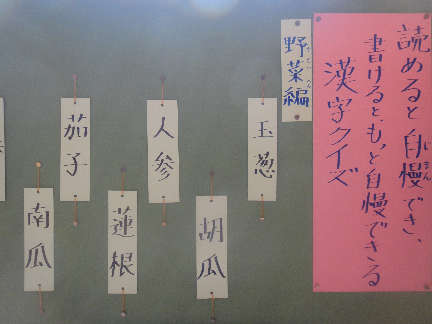 読めると自慢でき、
書けるともっと自慢できる
漢字クイズ
野菜編
玉葱
胡瓜
人参
蓮根
茄子
南瓜